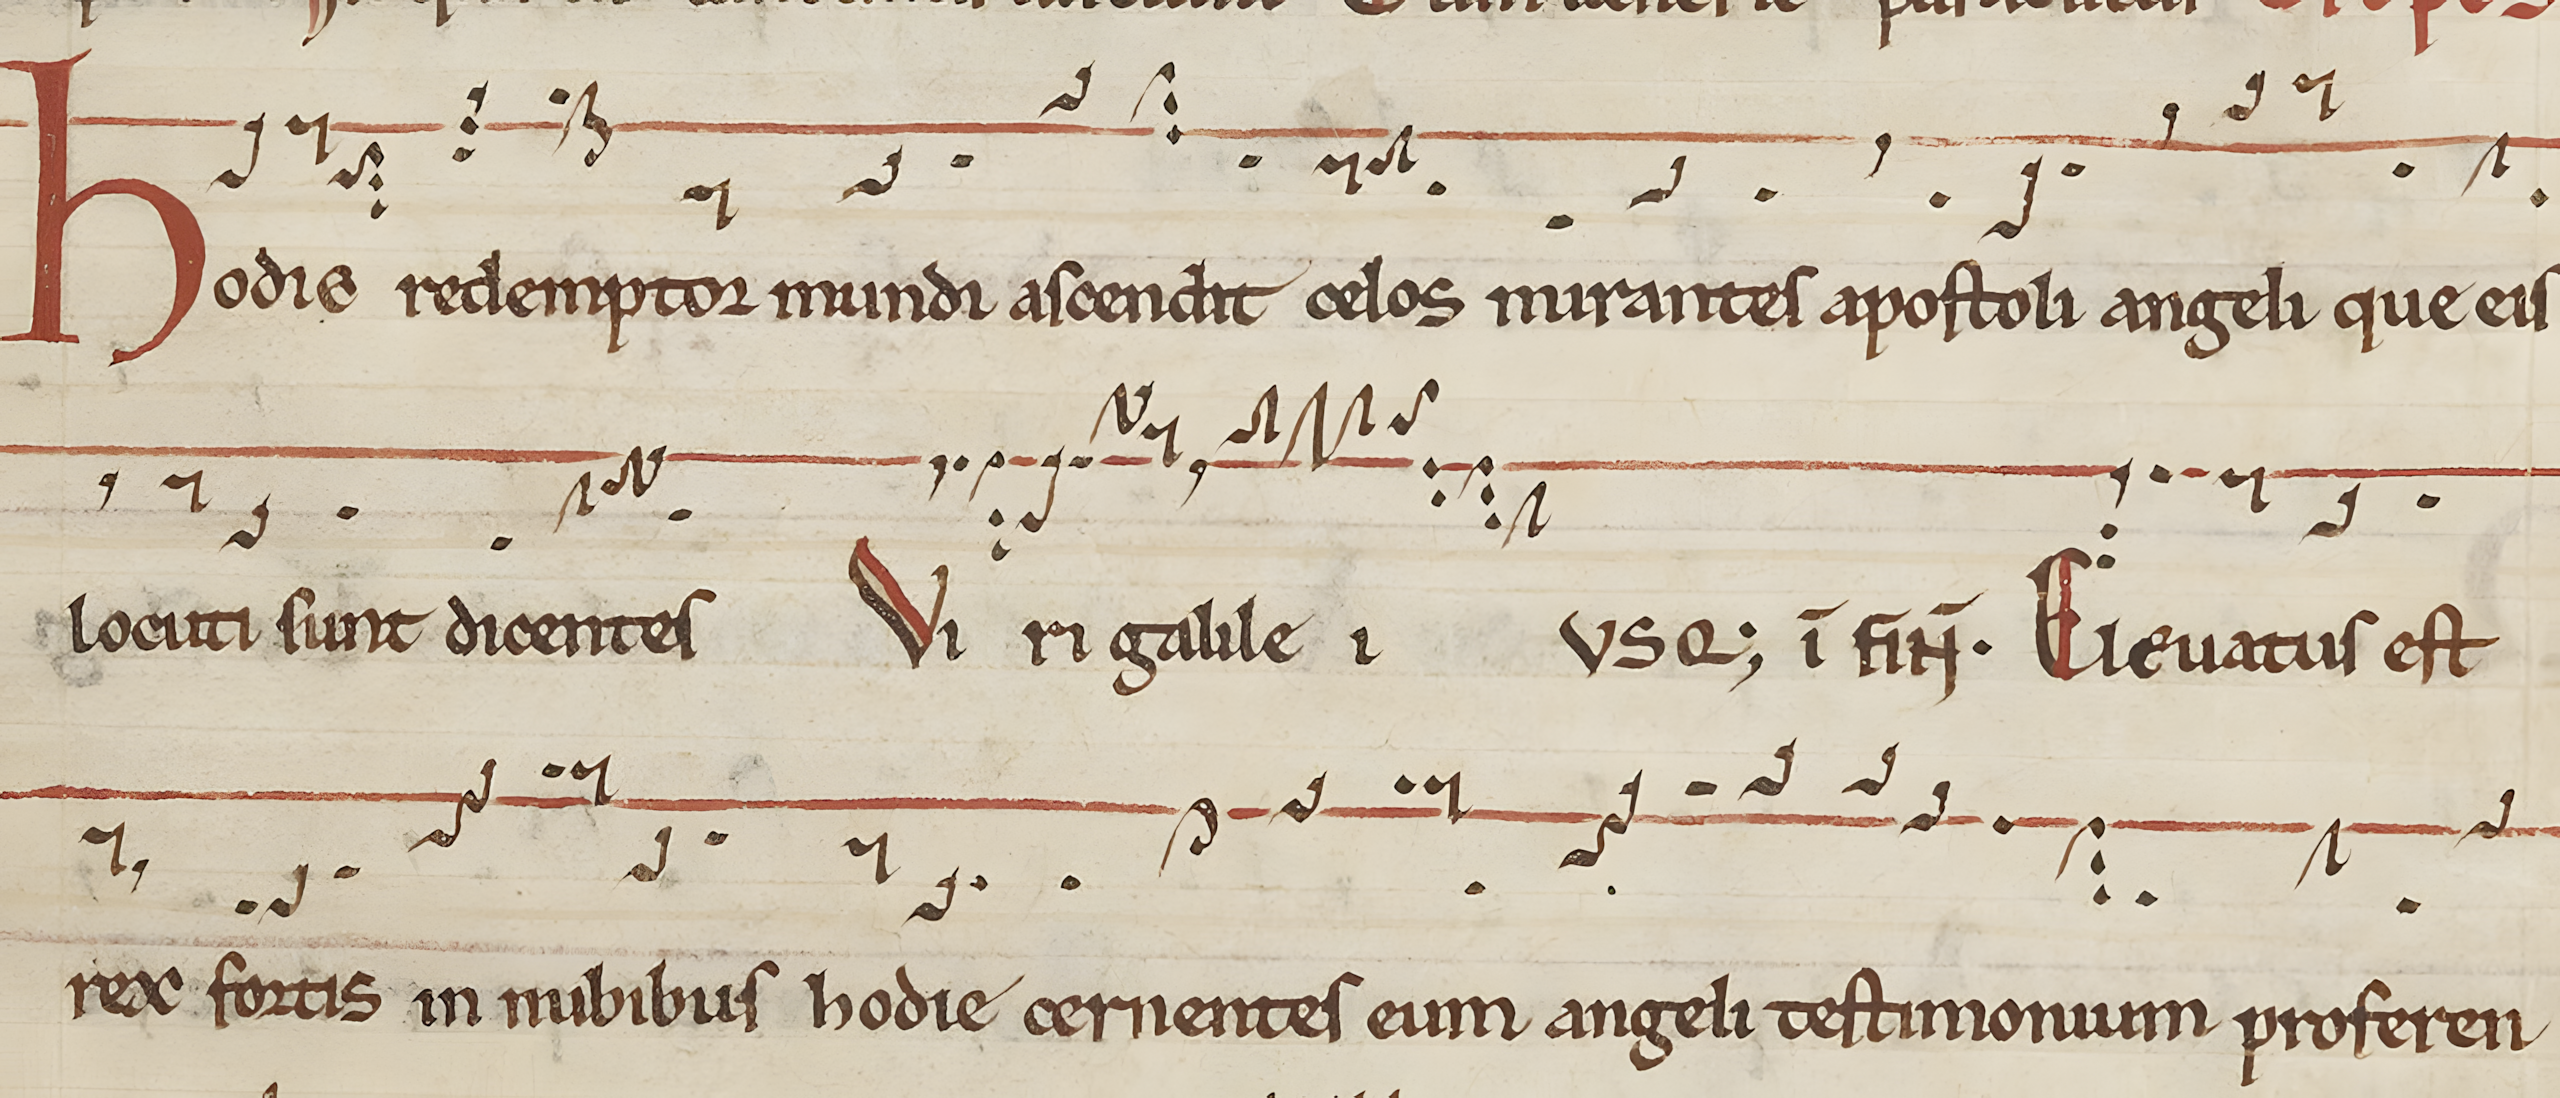 hodie redemptor mundi ascendit celos mirantes apostoli angeli que eis
locuti sunt dicentes Vi ri galile i VSQ; ī finū. Eleuatus est
rex fortis in nubibus hodie cernentes eum angeli testimonium proferen